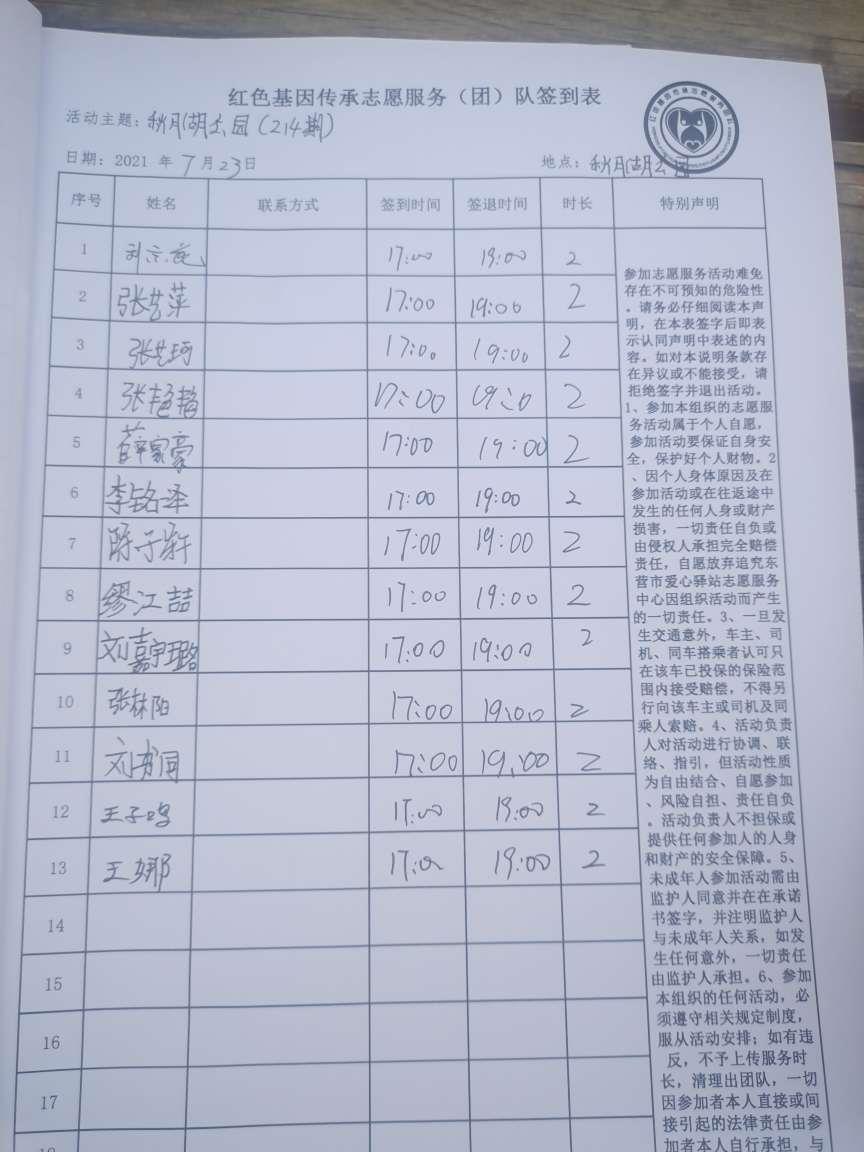 红色基因传承志愿服务（团）队签到表
活动主题：秋月湖公园（214期）
日期：2021 年 7 月 23 日 地点：秋月湖公园
序号 姓名 联系方式 签到时间 签退时间 时长 特别声明
1 17:00 19:00 2
2 张艺萍 17:00 19:00 2
3 张艺珂 17:00 19:00 2
4 张艳艳 17:00 19:00 2
5 薛家豪 17:00 19:00 2
6 李铭泽 17:00 19:00 2
7 陈子轩 17:00 19:00 2
8 缪江喆 17:00 19:00 2
9 刘嘉宇璐 17:00 19:00 2
10 张林阳 17:00 19:00 2
11 刘书闰 17:00 19:00 2
12 王子鸣 17:00 19:00 2
13 王娜 17:00 19:00 2
14
15
16
17
参加志愿服务活动难免
存在不可预知的危险性
。请务必仔细阅读本声
明，在本表签字后即表
示认同声明中表述的内
容。如对本说明条款存
在异议或不能接受，请
拒绝签字并退出活动。
1、参加本组织的志愿服
务活动属于个人自愿，
参加活动要保证自身安
全，保护好个人财物。2
、因个人身体原因及在
参加活动或在往返途中
发生的任何人身或财产
损害，一切责任自负或
由侵权人承担完全赔偿
责任，自愿放弃追究东
营市爱心驿站志愿服务
中心因组织活动而产生
的一切责任。3、一旦发
生交通意外，车主、司
机、同车搭乘者认可只
在该车已投保的保险范
围内接受赔偿，不得另
行向该车主或司机及同
乘人索赔。4、活动负责
人对活动进行协调、联
络、指引，但活动性质
为自由结合、自愿参加
、风险自担、责任自负
。活动负责人不担保或
提供任何参加人的人身
和财产的安全保障。5、
未成年人参加活动需由
监护人同意并在在承诺
书签字，并注明监护人
与未成年人关系，如发
生任何意外，一切责任
由监护人承担。6、参加
本组织的任何活动，必
须遵守相关规定制度，
服从活动安排；如有违
反，不予上传服务时
长，清理出团队，一切
因参加者本人直接或间
接引起的法律责任由参
加者本人自行承担，与